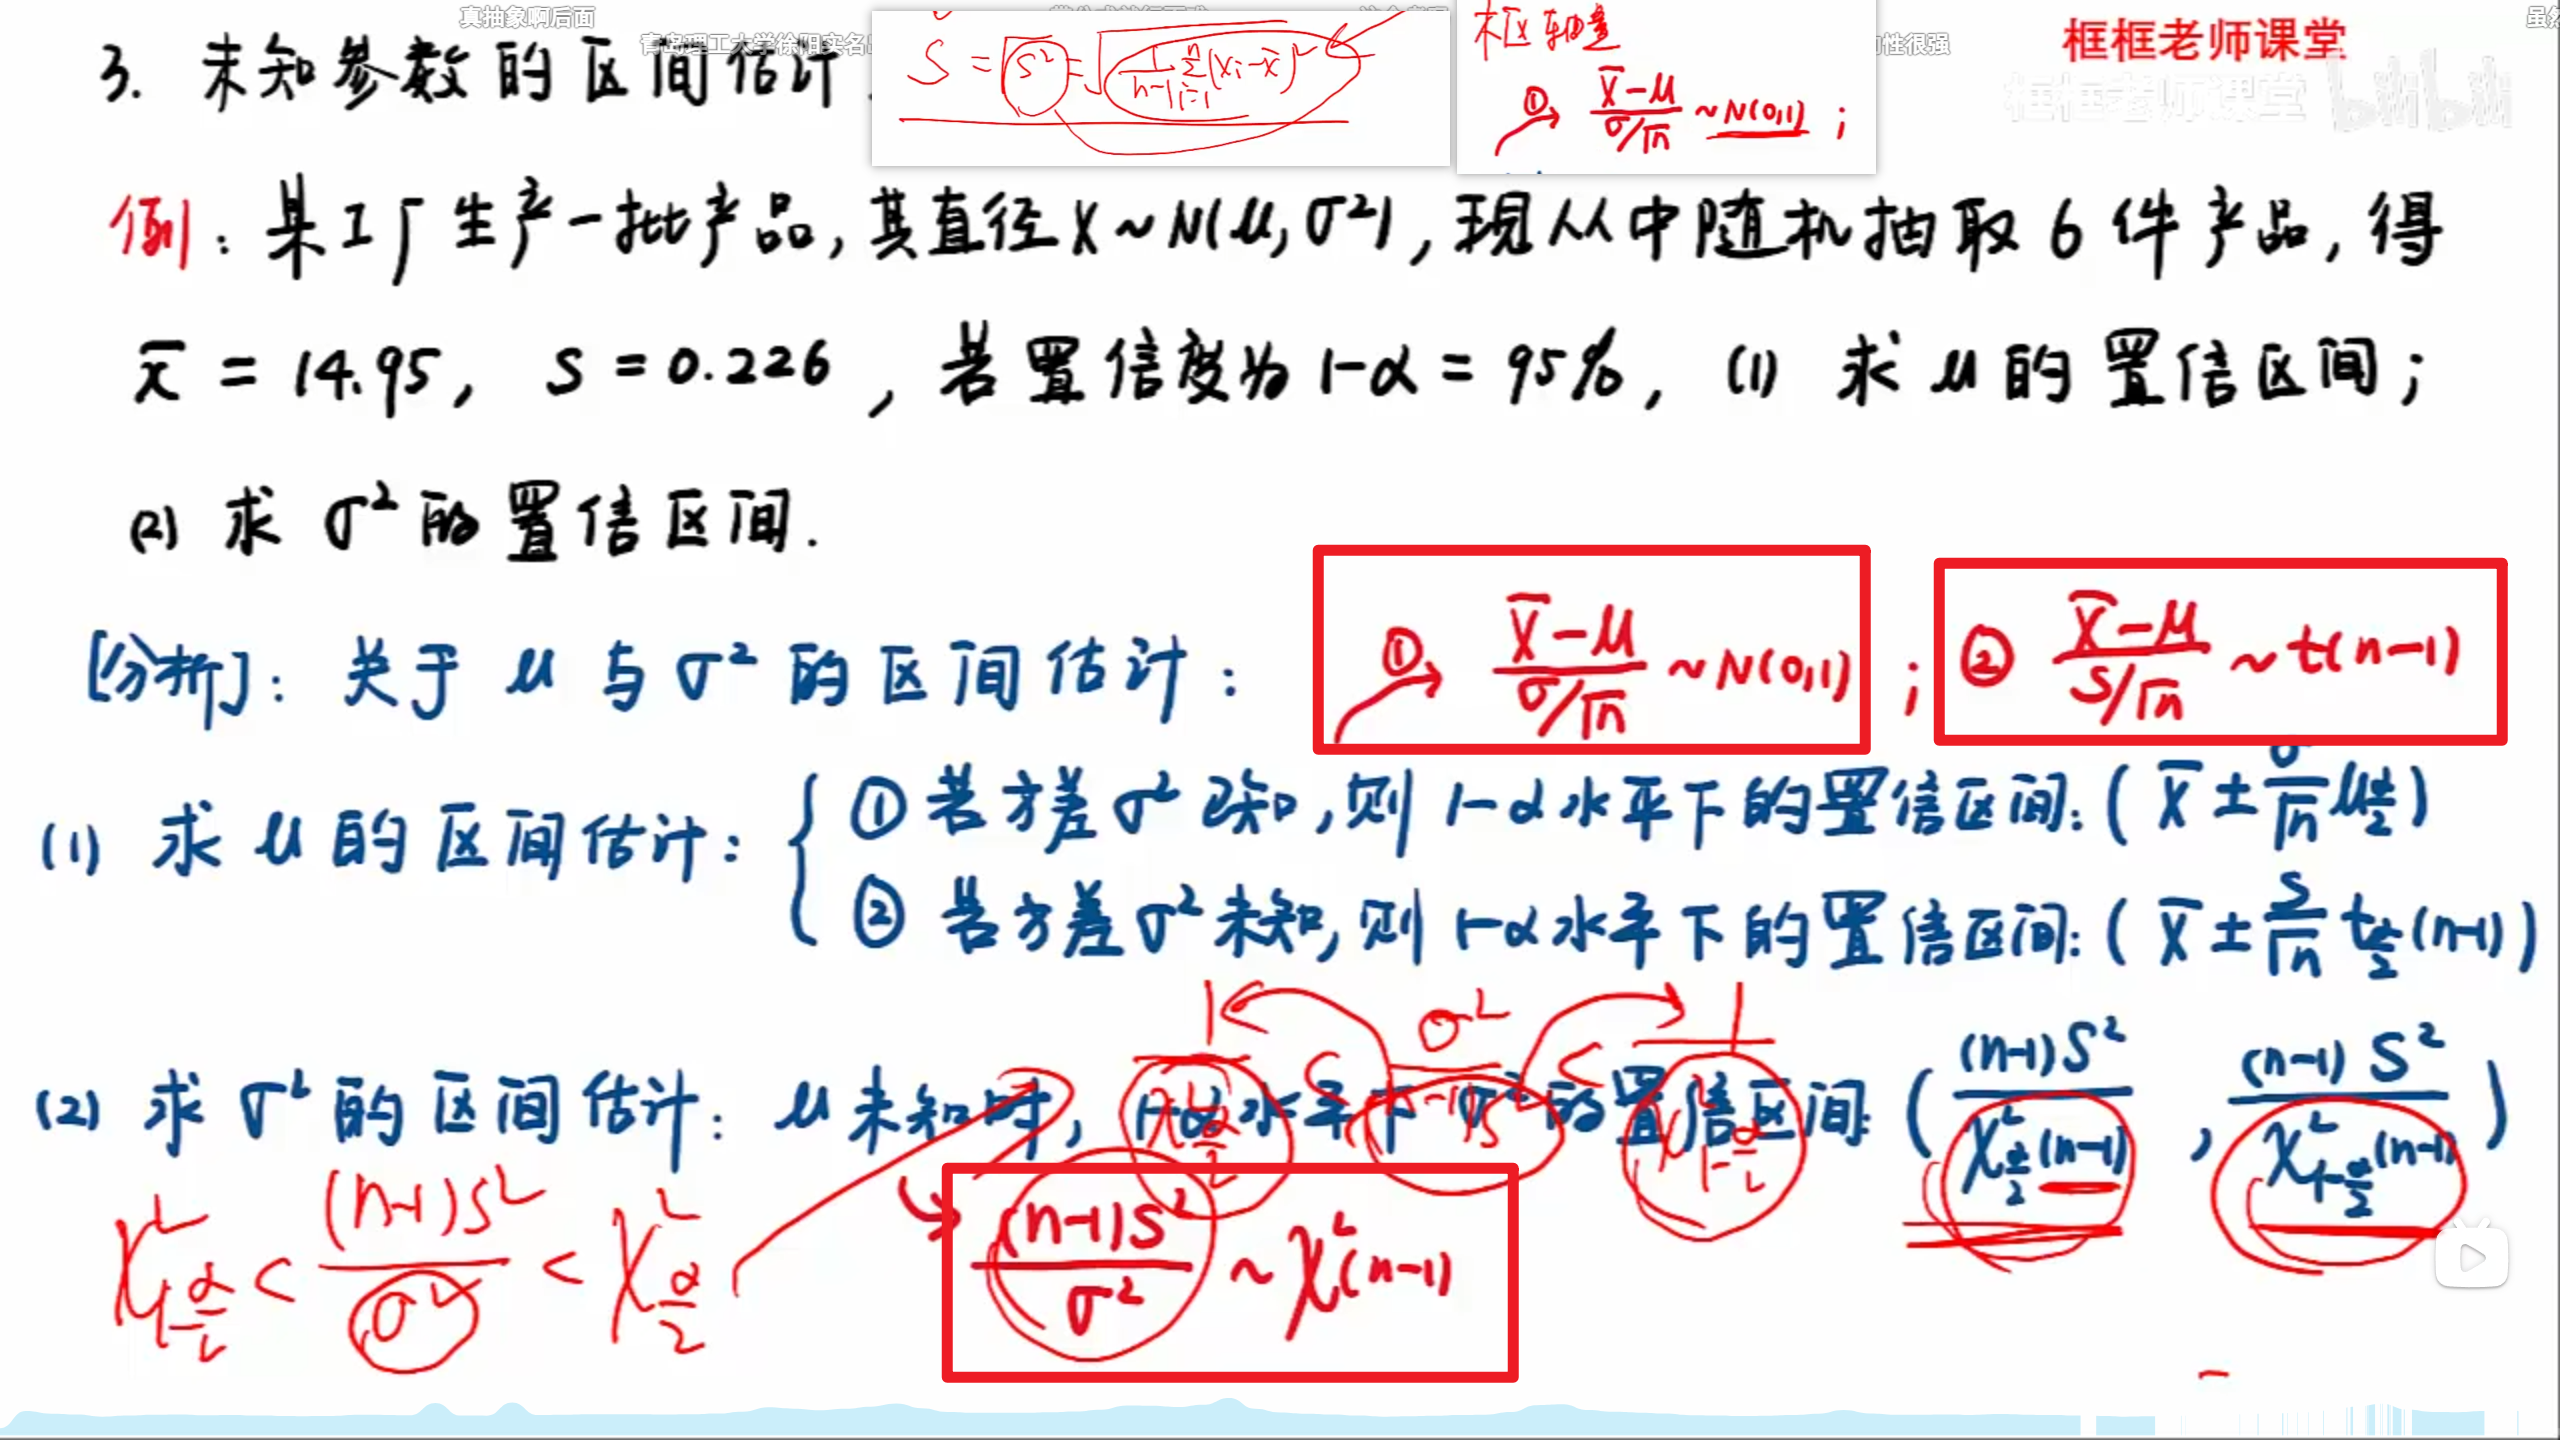 真抽象啊后面
框框老师课堂
框框老师课堂 bilibili
青岛理工大学徐阳实名
性很强
3. 未知参数的区间估计
S = √S² = √(1/(n-1) Σ(i=1→n) (xᵢ-x̄)²)
枢轴量
① (X̄-μ)/(σ/√n) ~N(0,1) ;
例: 某工厂生产一批产品, 其直径X~N(μ,σ²), 现从中随机抽取6件产品, 得
x̄ = 14.95, S = 0.226, 若置信度为1-α = 95%, (1) 求μ的置信区间;
(2) 求σ²的置信区间.
[分析]: 关于μ与σ²的区间估计: ① (X̄-μ)/(σ/√n) ~N(0,1) ; ② (X̄-μ)/(S/√n) ~t(n-1)
(1) 求μ的区间估计: { ① 若方差σ²已知, 则1-α水平下的置信区间: (X̄ ± σ/√n μ_{α/2})
② 若方差σ²未知, 则1-α水平下的置信区间: (X̄ ± S/√n t_{α/2}(n-1))
1/χ²_{α/2} < σ²/((n-1)S²) < 1/χ²_{1-α/2}
(2) 求σ²的区间估计: μ未知时, 1-α水平下σ²的置信区间: ((n-1)S²/χ²_{α/2}(n-1) , (n-1)S²/χ²_{1-α/2}(n-1))
χ²_{1-α/2} < (n-1)S²/σ² < χ²_{α/2}
(n-1)S²/σ² ~ χ²(n-1)